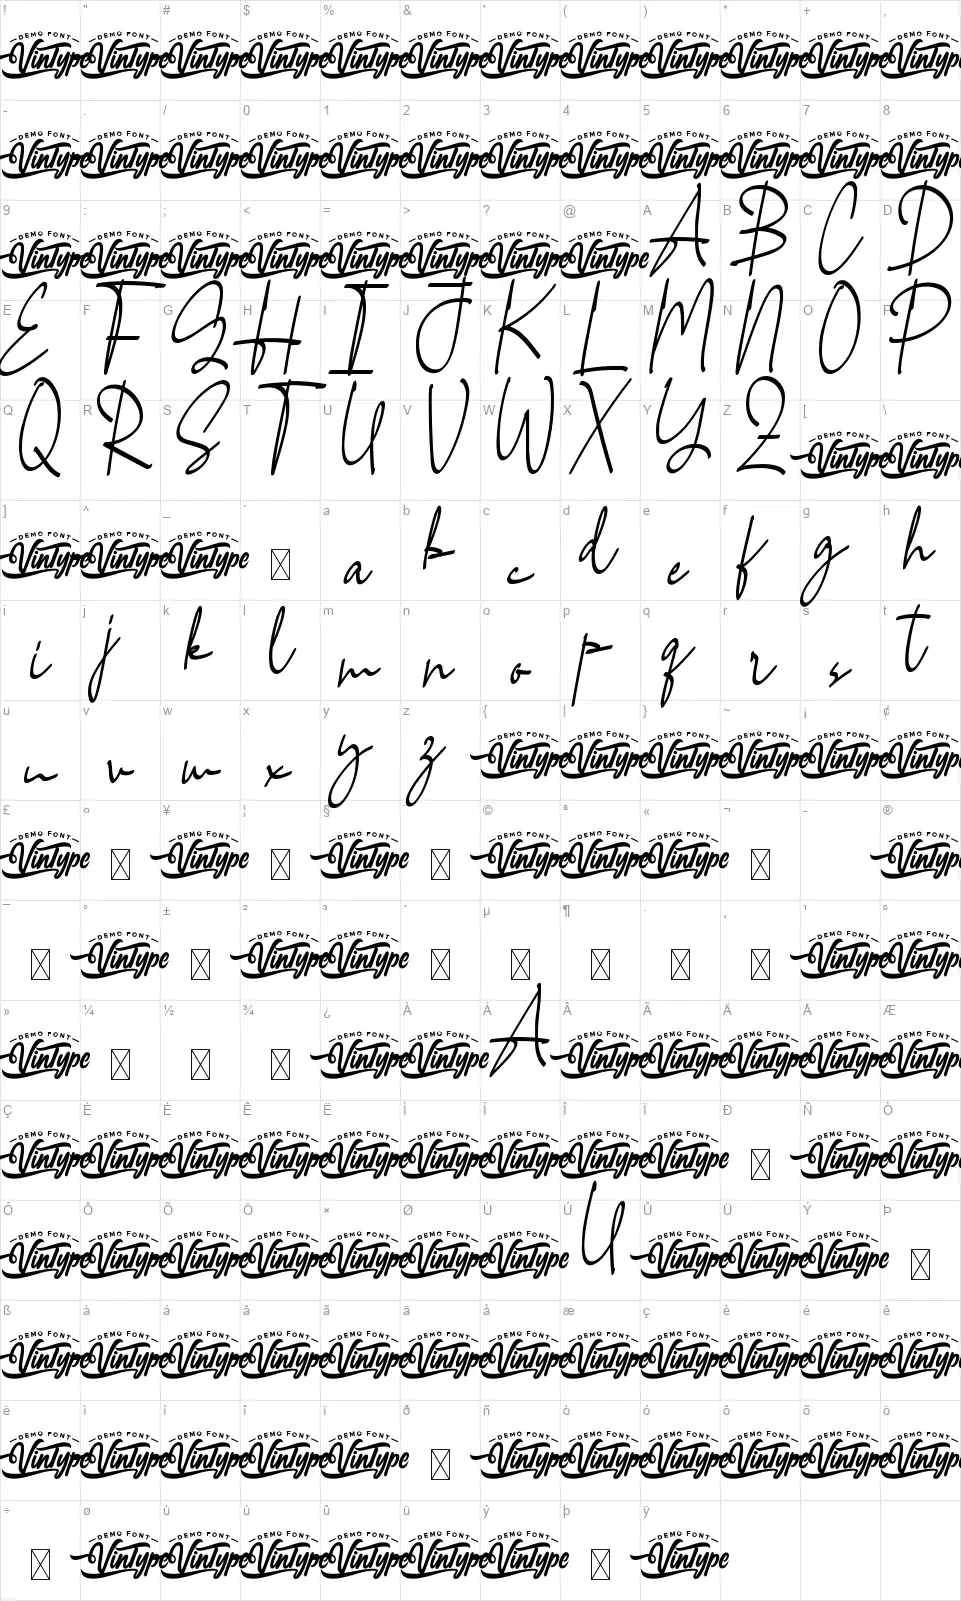 ! " # $ % & ' ( ) * + ,
DEMO FONT Vintype DEMO FONT Vintype DEMO FONT Vintype DEMO FONT Vintype DEMO FONT Vintype DEMO FONT Vintype DEMO FONT Vintype DEMO FONT Vintype DEMO FONT Vintype DEMO FONT Vintype DEMO FONT Vintype DEMO FONT Vintype
- . / 0 1 2 3 4 5 6 7 8
DEMO FONT Vintype DEMO FONT Vintype DEMO FONT Vintype DEMO FONT Vintype DEMO FONT Vintype DEMO FONT Vintype DEMO FONT Vintype DEMO FONT Vintype DEMO FONT Vintype DEMO FONT Vintype DEMO FONT Vintype DEMO FONT Vintype
9 : ; < = > ? @ A B C D
DEMO FONT Vintype DEMO FONT Vintype DEMO FONT Vintype DEMO FONT Vintype DEMO FONT Vintype DEMO FONT Vintype DEMO FONT Vintype DEMO FONT Vintype A B C D
E F G H I J K L M N O P
E F G H I J K L M N O P
Q R S T U V W X Y Z [ \
Q R S T U V W X Y Z DEMO FONT Vintype DEMO FONT Vintype
] ^ _ ` a b c d e f g h
DEMO FONT Vintype DEMO FONT Vintype DEMO FONT Vintype a b c d e f g h
i j k l m n o p q r s t
i j k l m n o p q r s t
u v w x y z { | } ~ ¡ ¢
u v w x y z DEMO FONT Vintype DEMO FONT Vintype DEMO FONT Vintype DEMO FONT Vintype DEMO FONT Vintype DEMO FONT Vintype
£ ¤ ¥ ¦ § © ª « ¬ - ®
DEMO FONT Vintype DEMO FONT Vintype DEMO FONT Vintype DEMO FONT Vintype DEMO FONT Vintype DEMO FONT Vintype DEMO FONT Vintype
¯ ° ± ² ³ ´ µ ¶ · ¸ ¹ º
DEMO FONT Vintype DEMO FONT Vintype DEMO FONT Vintype DEMO FONT Vintype DEMO FONT Vintype
» ¼ ½ ¾ ¿ À Á Â Ã Ä Å Æ
DEMO FONT Vintype DEMO FONT Vintype DEMO FONT Vintype A DEMO FONT Vintype DEMO FONT Vintype DEMO FONT Vintype DEMO FONT Vintype DEMO FONT Vintype
Ç È É Ê Ë Ì Í Î Ï Ð Ñ Ò
DEMO FONT Vintype DEMO FONT Vintype DEMO FONT Vintype DEMO FONT Vintype DEMO FONT Vintype DEMO FONT Vintype DEMO FONT Vintype DEMO FONT Vintype DEMO FONT Vintype DEMO FONT Vintype DEMO FONT Vintype
Ó Ô Õ Ö × Ø Ù Ú Û Ü Ý Þ
DEMO FONT Vintype DEMO FONT Vintype DEMO FONT Vintype DEMO FONT Vintype DEMO FONT Vintype DEMO FONT Vintype DEMO FONT Vintype U DEMO FONT Vintype DEMO FONT Vintype DEMO FONT Vintype
ß à á â ã ä å æ ç è é ê
DEMO FONT Vintype DEMO FONT Vintype DEMO FONT Vintype DEMO FONT Vintype DEMO FONT Vintype DEMO FONT Vintype DEMO FONT Vintype DEMO FONT Vintype DEMO FONT Vintype DEMO FONT Vintype DEMO FONT Vintype DEMO FONT Vintype
ë ì í î ï ð ñ ò ó ô õ ö
DEMO FONT Vintype DEMO FONT Vintype DEMO FONT Vintype DEMO FONT Vintype DEMO FONT Vintype DEMO FONT Vintype DEMO FONT Vintype DEMO FONT Vintype DEMO FONT Vintype DEMO FONT Vintype DEMO FONT Vintype
÷ ø ù ú û ü ý þ ÿ
DEMO FONT Vintype DEMO FONT Vintype DEMO FONT Vintype DEMO FONT Vintype DEMO FONT Vintype DEMO FONT Vintype DEMO FONT Vintype